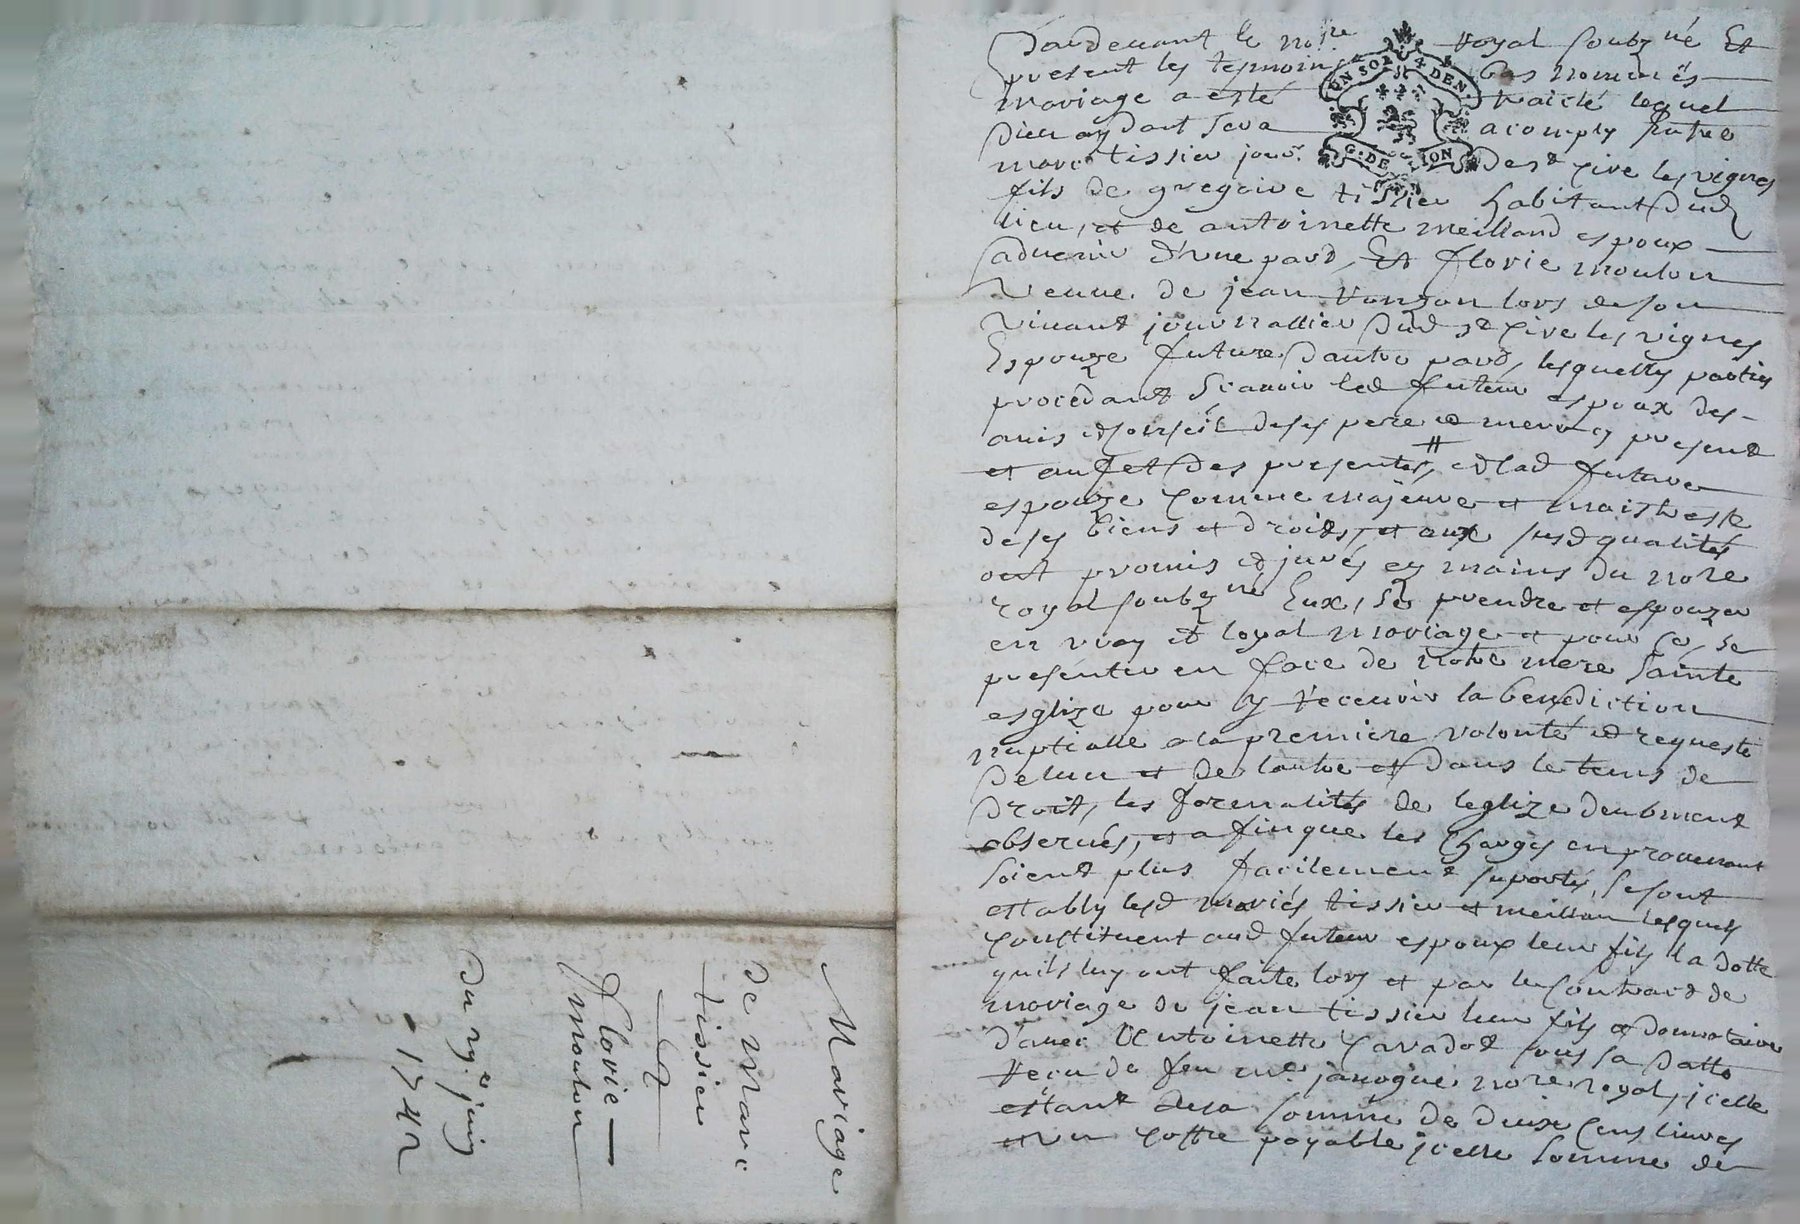 Mariage
de Marc
tissier
Et
Florie
mouton
Du 19e juin
1742
Pardevant le nore royal soubzné Et
present les tesmoins bas nommés
mariage a esté traicté lequel
Dieu aydant sera acomply Entre
marc tissier jour. de st cire les vignes
fils de gregoire tissier habitant dud
lieu, et de antoinette meilland espoux
advenir d'une part, Et florie mouton
Veuve de jean lors de son
vivant journallier dud st cire les vignes
Espouze future dautre part, lesquelles parties
procedant scavoir led futeur espoux des
avis et conseil de ses pere et mere cy present
et des presentes, et lad future
espouze comme majeure et maistresse
de ses biens et droits, et aux susd qualités
ont promis et jurés es mains du nore
royal soubzné Eux, se prendre et espouzer
en vray et loyal mariage et pour ce, se
presenter en face de notre mere sainte
esglize pour y recevoir la benediction
nuptialle a la premiere volonté et requeste
de lun et de lautre et dans le tems de
droit, les formalités de leglize deubment
observés, et afin que les charges en provenant
soient plus facilement suportés, se sont
estably lesd mariés tissier et meillan lesquels
constituent aud futeur espoux leur fils la dotte
quils luy ont faite lors et par le contract de
mariage de jean tissier leur fils et donnotaire
d'avec Antoinette cavadot sous sa datte
receu de feu me. janogue nore royal, icelle
estant de la somme de deux cens livres
et un coffre payable icelle somme de
EN SOL 4 DEN.
G. DE ION